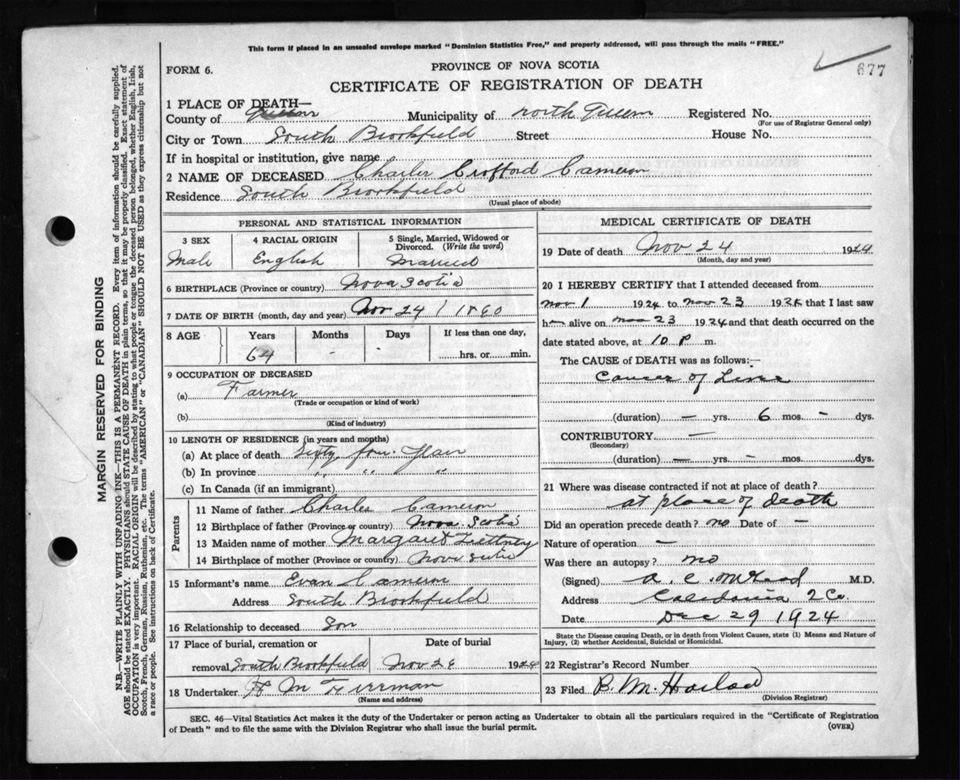 This form if placed in an unsealed envelope marked "Dominion Statistics Free," and properly addressed, will pass through the mails "FREE."
677
FORM 6.
PROVINCE OF NOVA SCOTIA
CERTIFICATE OF REGISTRATION OF DEATH
1 PLACE OF DEATH—
County of Queens Municipality of North Queens Registered No.
(For use of Registrar General only)
City or Town South Brookfield Street House No.
If in hospital or institution, give name
2 NAME OF DECEASED Charles Crofford Cameron
Residence South Brookfield
(Usual place of abode)
PERSONAL AND STATISTICAL INFORMATION
3 SEX 4 RACIAL ORIGIN 5 Single, Married, Widowed or Divorced. (Write the word)
Male English Married
6 BIRTHPLACE (Province or country) Nova Scotia
7 DATE OF BIRTH (month, day and year) Nov 24 / 1860
8 AGE Years Months Days If less than one day,
64 - - hrs. or min.
9 OCCUPATION OF DECEASED
(a) Farmer
(Trade or occupation or kind of work)
(b)
(Kind of industry)
10 LENGTH OF RESIDENCE (in years and months)
(a) At place of death Sixty four Years
(b) In province " " "
(c) In Canada (if an immigrant)
Parents
11 Name of father Charles Cameron
12 Birthplace of father (Province or country) Nova Scotia
13 Maiden name of mother Margaret
14 Birthplace of mother (Province or country) Nova Scotia
15 Informant's name Evan Cameron
Address South Brookfield
16 Relationship to deceased Son
17 Place of burial, cremation or Date of burial
removal South Brookfield Nov 28 1924
18 Undertaker H M
(Name and address)
MEDICAL CERTIFICATE OF DEATH
19 Date of death Nov 24 1924
(Month, day and year)
20 I HEREBY CERTIFY that I attended deceased from
Nov 1 1924 to Nov 23 1924 that I last saw
h alive on Nov 23 1924 and that death occurred on
date stated above, at 10 P m.
The CAUSE OF DEATH was as follows:—
Cancer of Liver
(duration) — yrs. 6 mos. - dys.
CONTRIBUTORY —
(Secondary)
(duration) — yrs. — mos. — dys.
21 Where was disease contracted if not at place of death?
at place of death
Did an operation precede death? no Date of —
Nature of operation —
Was there an autopsy? no
(Signed) A. C. M.D.
Address Caledonia Q Co
Date Dec 29 1924
State the Disease causing Death, or in death from Violent Causes, state (1) Means and Nature of Injury, (2) whether Accidental, Suicidal or Homicidal.
22 Registrar's Record Number
23 Filed B. M. Harlow
(Division Registrar)
SEC. 46—Vital Statistics Act makes it the duty of the Undertaker or person acting as Undertaker to obtain all the particulars required in the "Certificate of Registration
of Death" and to file the same with the Division Registrar who shall issue the burial permit.
(OVER)
MARGIN RESERVED FOR BINDING
N.B.—WRITE PLAINLY WITH UNFADING INK—THIS IS A PERMANENT RECORD. Every item of information should be carefully supplied.
AGE should be stated EXACTLY. PHYSICIANS should STATE CAUSE OF DEATH in plain terms, so that it may be properly classified. Exact statement of
OCCUPATION is very important. RACIAL ORIGIN will be described by stating to what people or tongue the deceased person belonged, whether English, Irish,
Scotch, French, German, Russian, Ruthenian, etc. The terms "AMERICAN" or "CANADIAN" SHOULD NOT BE USED as they express citizenship but not
a race or people. See instructions on back of Certificate.